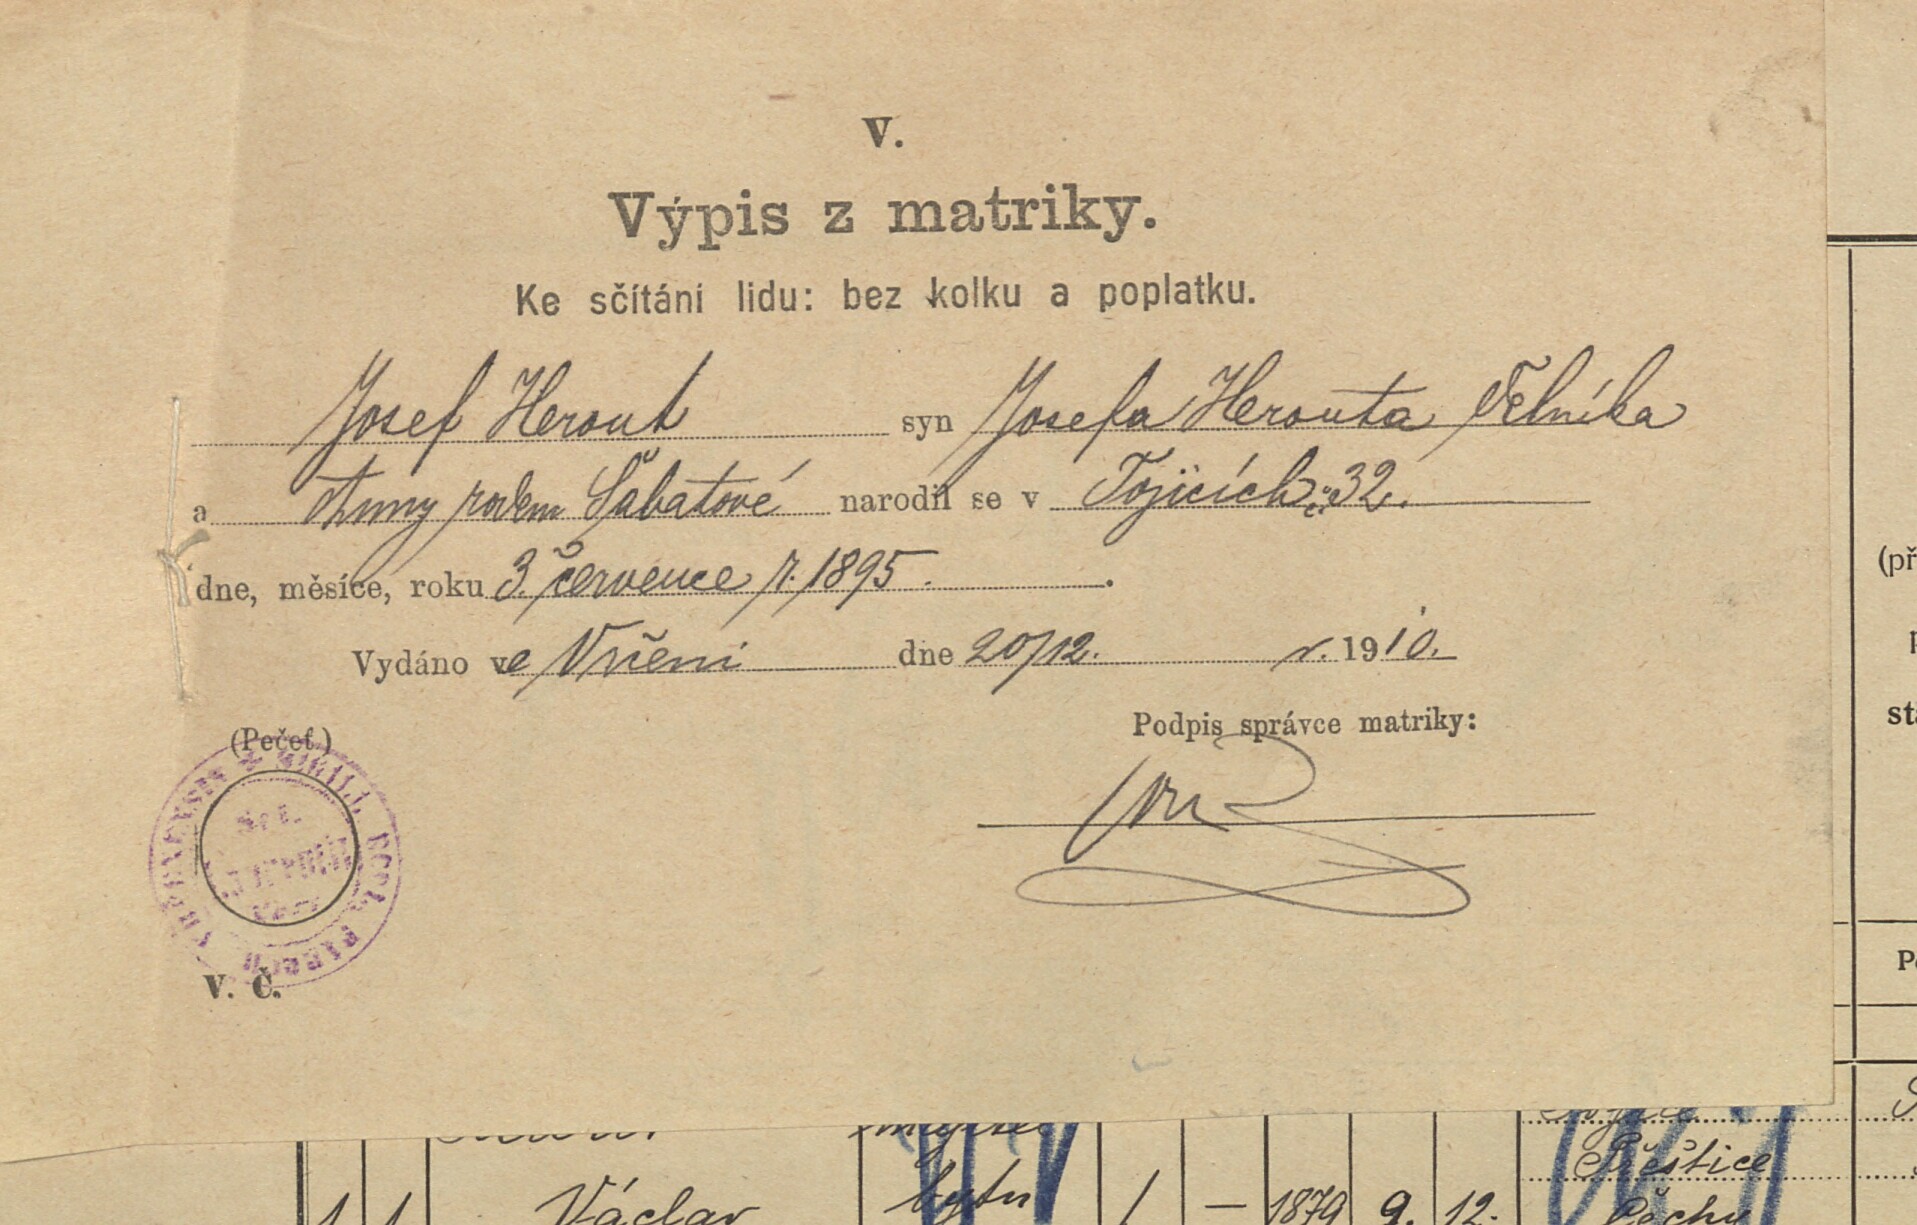 V.
Výpis z matriky.
Ke sčítání lidu: bez kolku a poplatku.
Josef Herout syn Josefa Herouta čelníka
a Anny rodem Šabatové narodil se v Tojicích č. 32.
dne, měsíce, roku 3. července r. 1895.
Vydáno ve Vrčeni dne 20/12. r. 1910.
(Pečeť.)
Podpis správce matriky:
V. Č.
(př
st
Přeštice
Václav bytu 1 — 1879 9. 12. Čechy